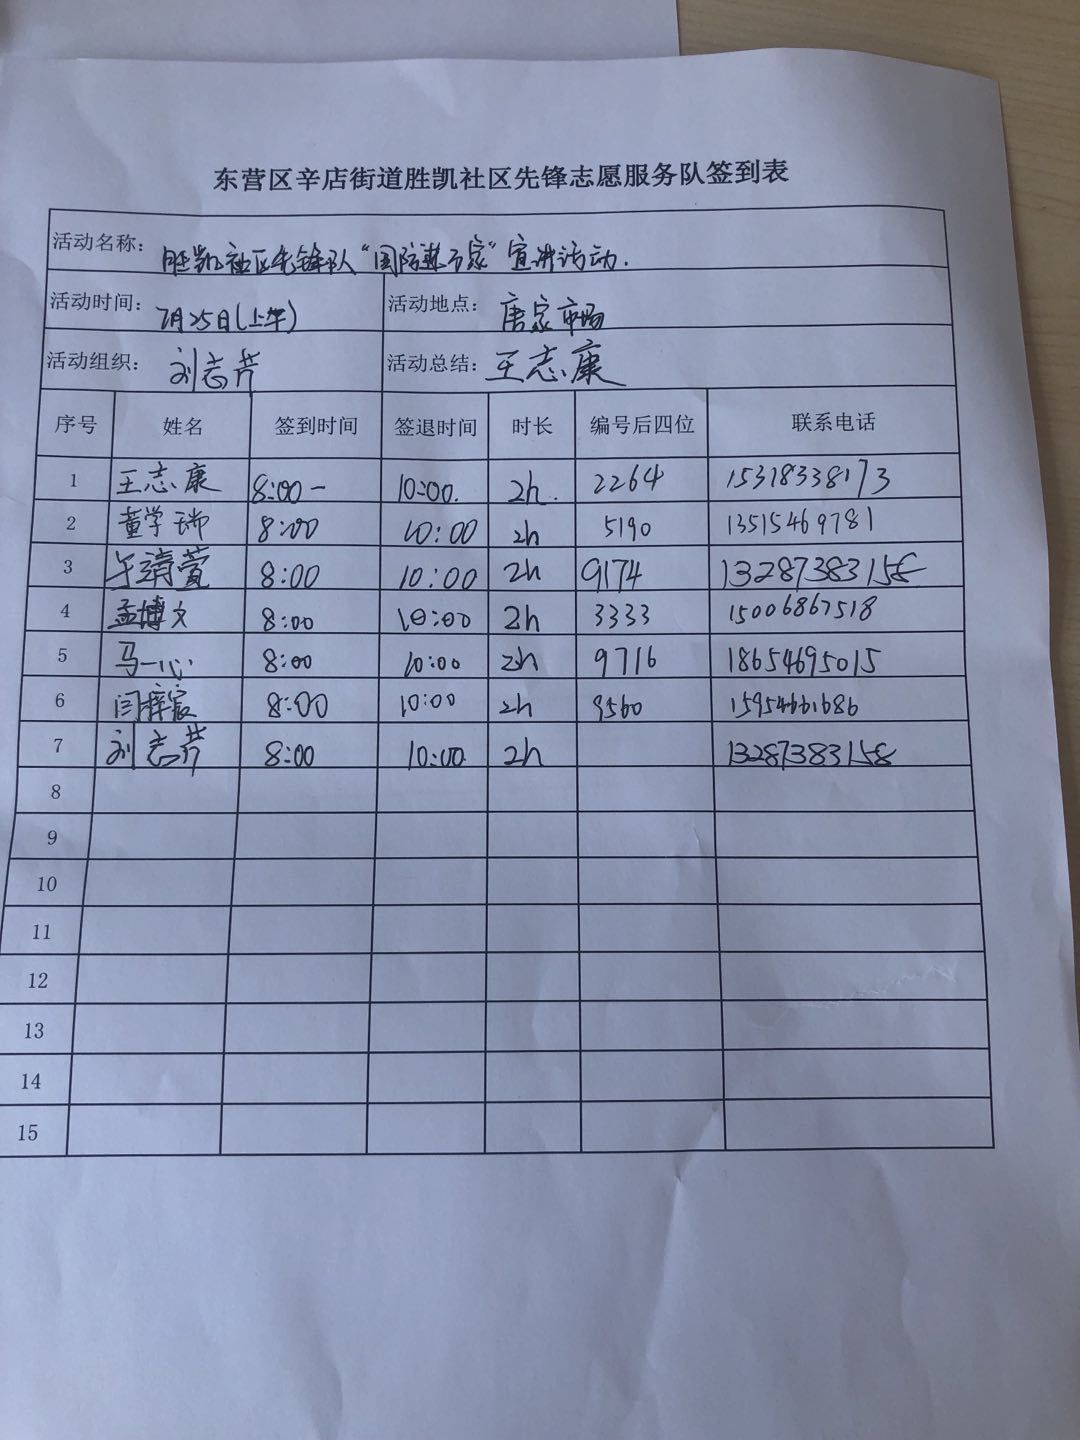 东营区辛店街道胜凯社区先锋志愿服务队签到表
活动名称： 胜凯社区先锋队“国防进万家”宣讲活动.
活动时间： 7月25日(上午) 活动地点： 唐家市场
活动组织： 刘志芹 活动总结： 王志康
序号 姓名 签到时间 签退时间 时长 编号后四位 联系电话
1 王志康 8:00- 10:00. 2h. 2264 15318338173
2 董学瑞 8:00 10:00 2h 5190 13515469781
3 8:00 10:00 2h 9174 13287383158
4 孟博文 8:00 10:00 2h 3333 15006867518
5 马一心 8:00 10:00 2h 9716 18654695015
6 闫梓宸 8:00 10:00 2h 9560 15954661686
7 刘志芹 8:00 10:00 2h 13287383158
8
9
10
11
12
13
14
15